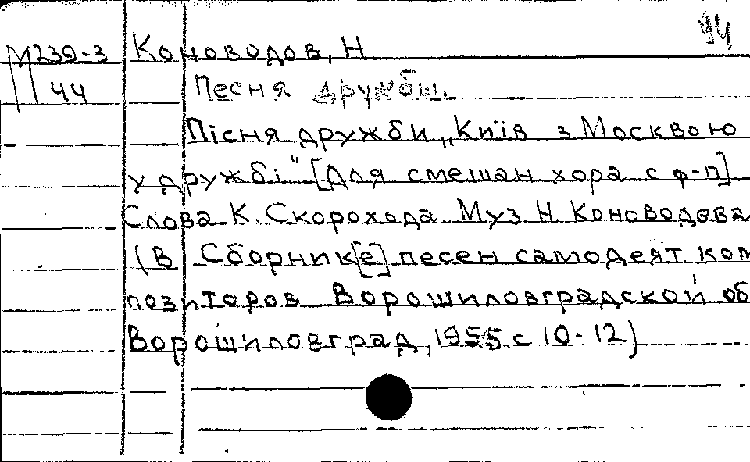 44
М239-3 Коноводов, Н
44 Песня дружбы.
Пісня дружби „Київ з Москвою
у дружбі" [Для смешан хора с ф-п]
Слова К. Скорохода Муз Н Коноводова
(В Сборник[е] песен самодеят ком
позиторов Ворошиловградской об
Ворошиловград, 1955 с 10-12)